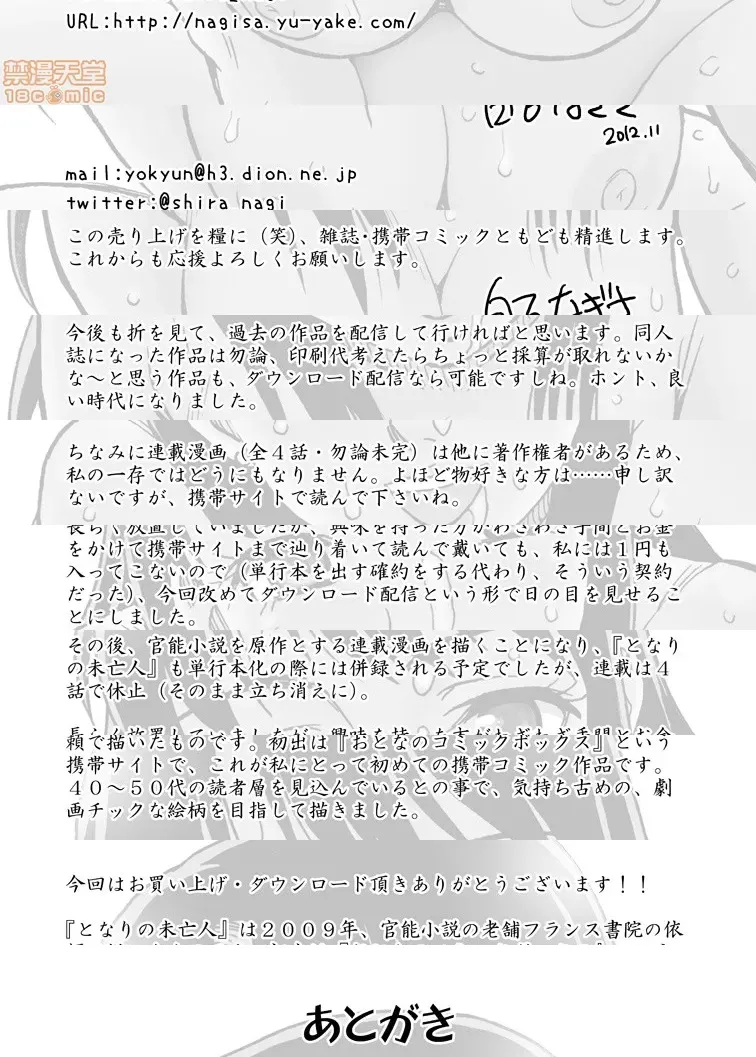 URL:http://nagisa.yu-yake.com/
禁漫天堂
18comic
2012.11
mail:yokyun@h3.dion.ne.jp
twitter:@shira_nagi
この売り上げを糧に（笑）、雑誌・携帯コミックともども精進します。
これからも応援よろしくお願いします。
今後も折を見て、過去の作品を配信して行ければと思います。同人
誌になった作品は勿論、印刷代考えたらちょっと採算が取れないか
な〜と思う作品も、ダウンロード配信なら可能ですしね。ホント、良
い時代になりました。
ちなみに連載漫画（全４話・勿論未完）は他に著作権者があるため、
私の一存ではどうにもなりません。よほど物好きな方は……申し訳
ないですが、携帯サイトで読んで下さいね。
長らく放置していましたが、興味を持った方がわざわざ手間とお金
をかけて携帯サイトまで辿り着いて読んで戴いても、私には１円も
入ってこないので（単行本を出す確約をする代わり、そういう契約
だった）、今回改めてダウンロード配信という形で日の目を見せるこ
とにしました。
その後、官能小説を原作とする連載漫画を描くことになり、『となり
の未亡人』も単行本化の際には併録される予定でしたが、連載は４
話で休止（そのまま立ち消えに）。
頼で描いたものです。初出は『おとなのコミックボックス』という
携帯サイトで、これが私にとって初めての携帯コミック作品です。
４０〜５０代の読者層を見込んでいるとの事で、気持ち古めの、劇
画チックな絵柄を目指して描きました。
今回はお買い上げ・ダウンロード頂きありがとうございます！！
『となりの未亡人』は２００９年、官能小説の老舗フランス書院の依
あとがき